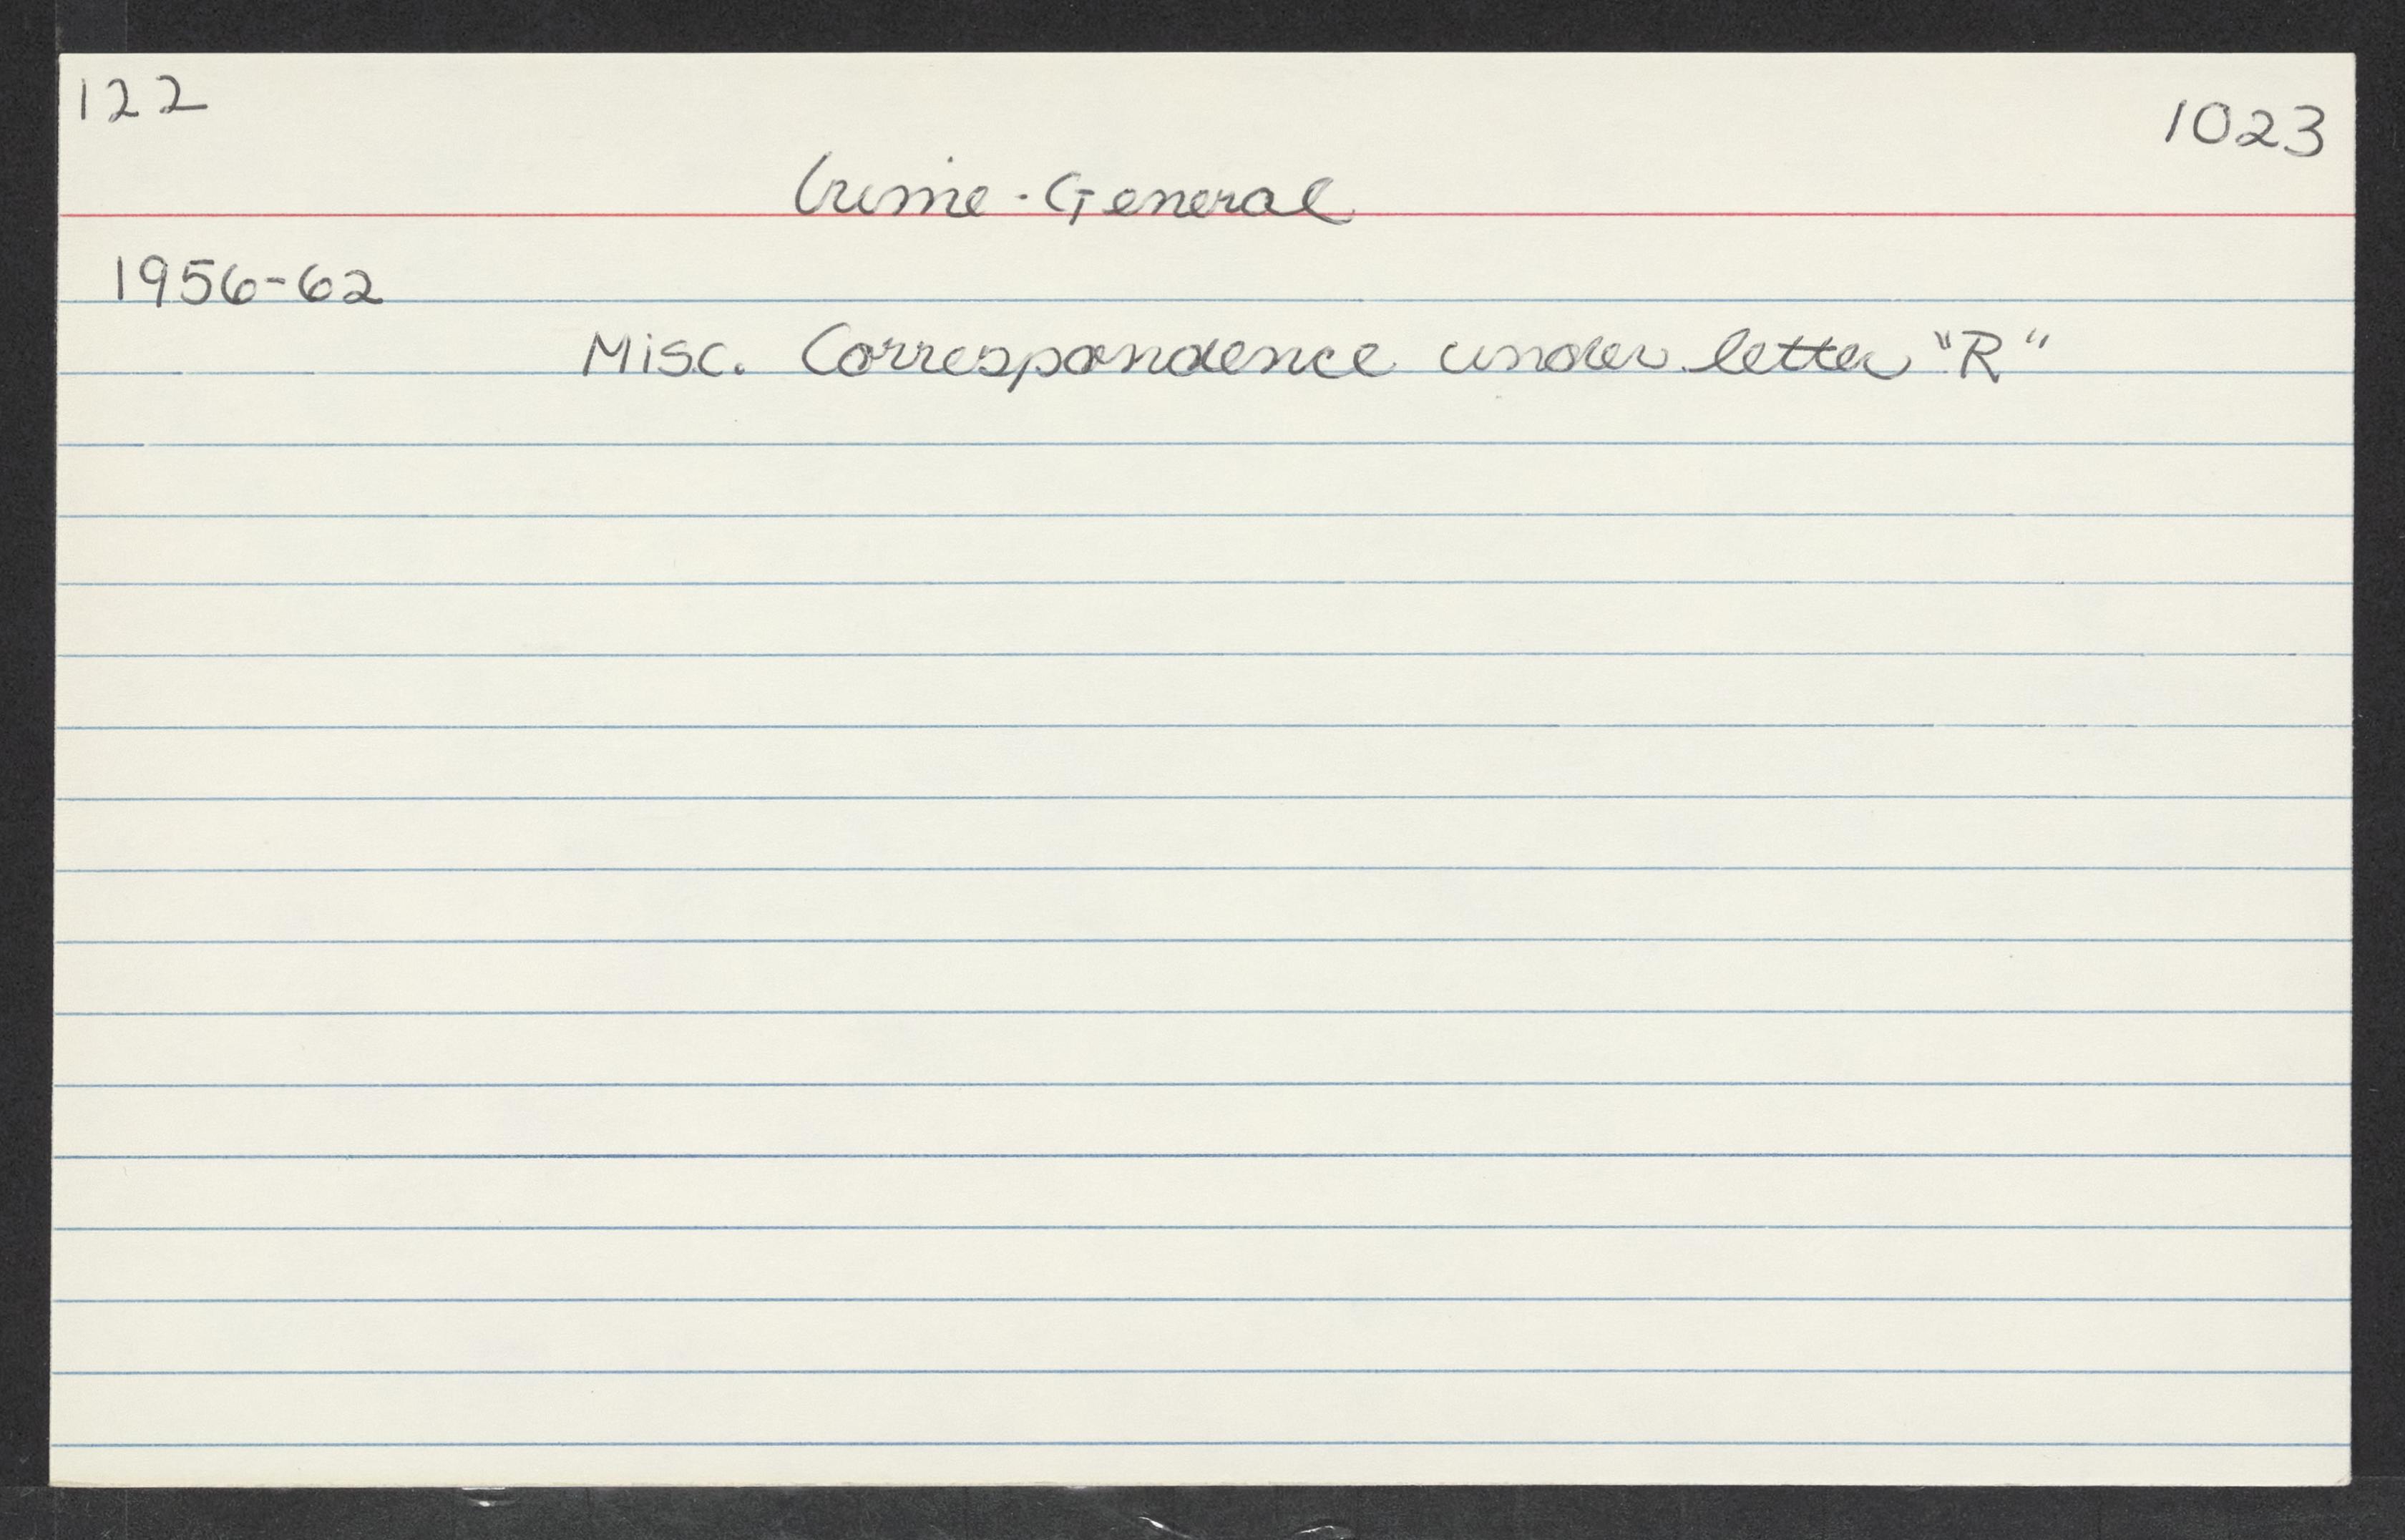 122
1023
Crime - General
1956-62
Misc. Correspondence under letter "R"